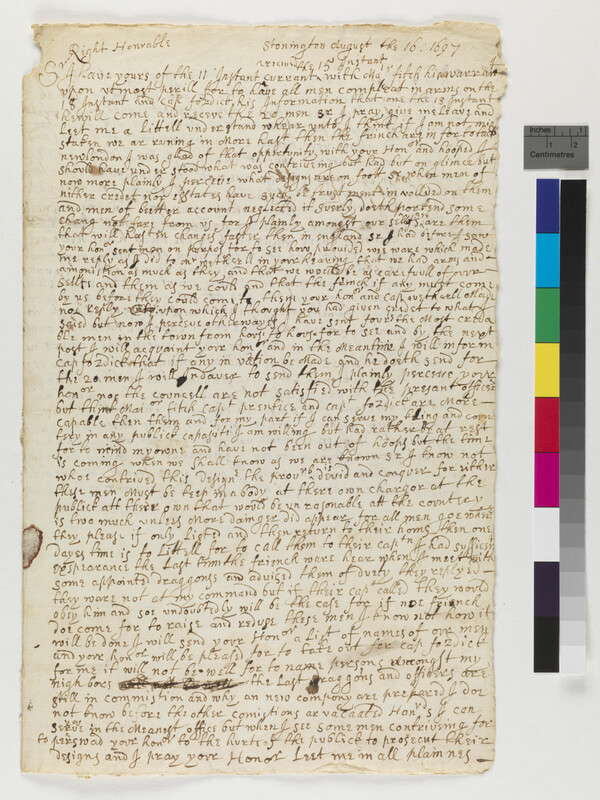 Right Honrable Stonington August the 16: 1697
recived the 15 Instant
Sr I have yours of the 11 Instant currant with Maj fitch his warran
upon utmost perill for to have all men compleat in arms on the
18 Instant and Cap fordict his Information that one the 18 Instant
he will come and receve the 20 men Sr I pray give me Leave and
Leet me a Littell understand whear unto it tends if I am not mis
staken we ar runing in More hast then the french ar in for to take
newlondon I was glad of that opportunity with your Honor and hooped I
should have understood what was contriveing but had but on glimce but
now more plainly I perceive what designs are on foot Sr when men of
nither credet nor estates have such trust ment involved on them
and men of better account neglected it suerly doeth portend some
chang not fare from us for I plainly amongst our sellves are them
that will hasten chang faster then in england Sr I had disnerd I saw
your honor sent men on purpos for to see how provided we ware which made
me reply as I did to Mr wetherell in your hearing that we had arms and
amonition as much as they and that we would be as carefull of our
sellves and them as we could and that the french if any must come
by us before they could come to them your honr and Cap wetherell Made
not reply upon which I thought you had given credet to what I
saied but now I perceve otherways I have sent for the Most creda
ble men in the town from hows to hows for to see and by the next
post I will acquaint your honor and in the Meantime I will inform
Cap fordict that if any invation be Made and he doeth send for
the 20 men I will indaver to send them I plainly perceve your
honor nor the councell are not satisfied with the presant officers
but think Maj fitch Capt prentice and Capt fordict are More
capable then them and for my part if I can serve my king and coun
tery in any publick capasiti I am willing but had rather be at rest
for to mind my owne and have not been out of hoops but the time
is coming when we shall know as we are known Sr I know not
whoe contrived this design the proverb is devid and conquer for either
these men must be keep in a body at there own charg or at the
publick att there own that would be unreasonable att the countery
is two much unless More dainger did appear for all men goe where
they please if only Listed and then return to their homs then one
dayes time is to Littell for to call them to their capt I had suffitien
appearance the Last time the french ware hear when I meet with
some appointed draggonss and advised them of duety they replyed
they ware not at my command but if their cap called they would
obey him and soe undoubtedly will be the case for if noe french
doe come for to raise and reduse these men I know not how it
will be done I will send your Honor a List of names of our men
and your honor will be pleased for to take out for cap fordict
for me it will not be well for to name persons amongst my
nighbors the Last draggons and officers are
still in commistion and why an new company are prepared I doe
not know before the other comistions ar vacaated Honrd Sr I can
serve in the Meanest office but when I see some men contriveing for
to perswad your honor to the hurte of the publick to prosecut their
designs and I pray your Honor Leet me in all plainnes